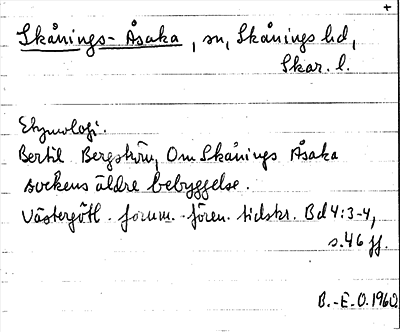 +
Skånings-Åsaka, sn, Skånings hd,
Skar. l.
Etymologi.
Bertil Bergström, Om Skånings Åsaka
sockens äldre bebyggelse.
Västergötl. fornm.-fören. tidskr. Bd 4:3-4,
s. 46 ff.
B.-E.O. 1960